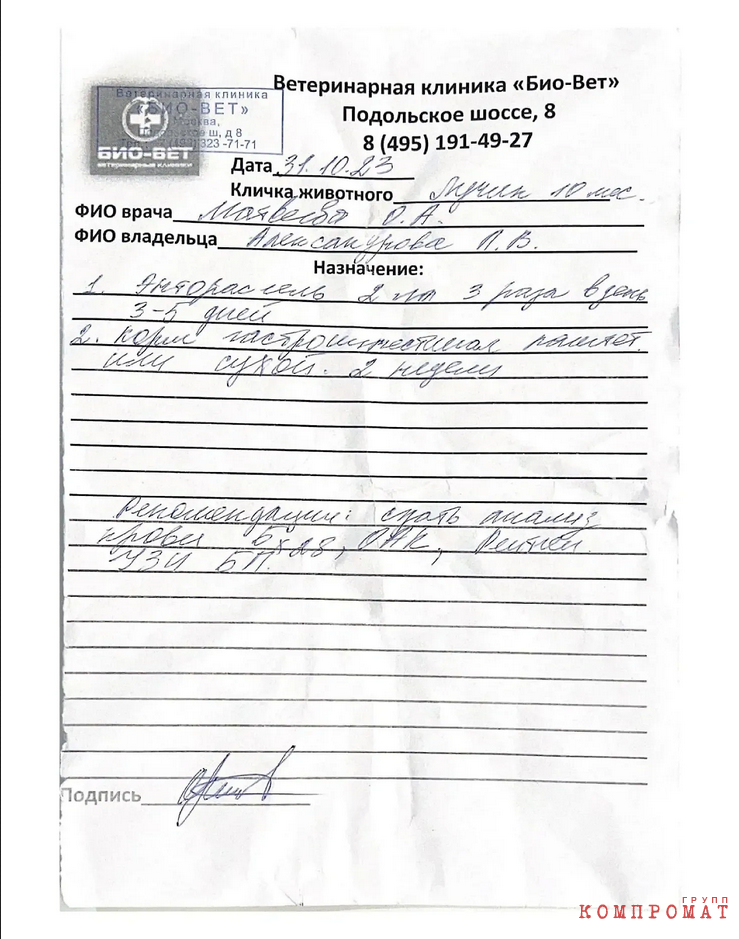 Ветеринарная клиника «Био-Вет»
Подольское шоссе, 8
8 (495) 191-49-27
Ветеринарная клиника
«БИО-ВЕТ»
Москва,
ш, д 8
323 -71-71
БИО-ВЕТ
ветеринарные клиники
Дата 31.10.23
Кличка животного 10 мес.
ФИО врача Матвеева О.А.
ФИО владельца Александрова Л.В.
Назначение:
1. Энторосгель 2 мл 3 раза в день
3-5 дней
2. Корм гастроинтестинал паштет
или сухой. 2 недели
Рекомендации: сдать анализ
крови Бх 28, ОАК,
УЗИ БП.
Подпись
ГРУПП
КОМПРОМАТ